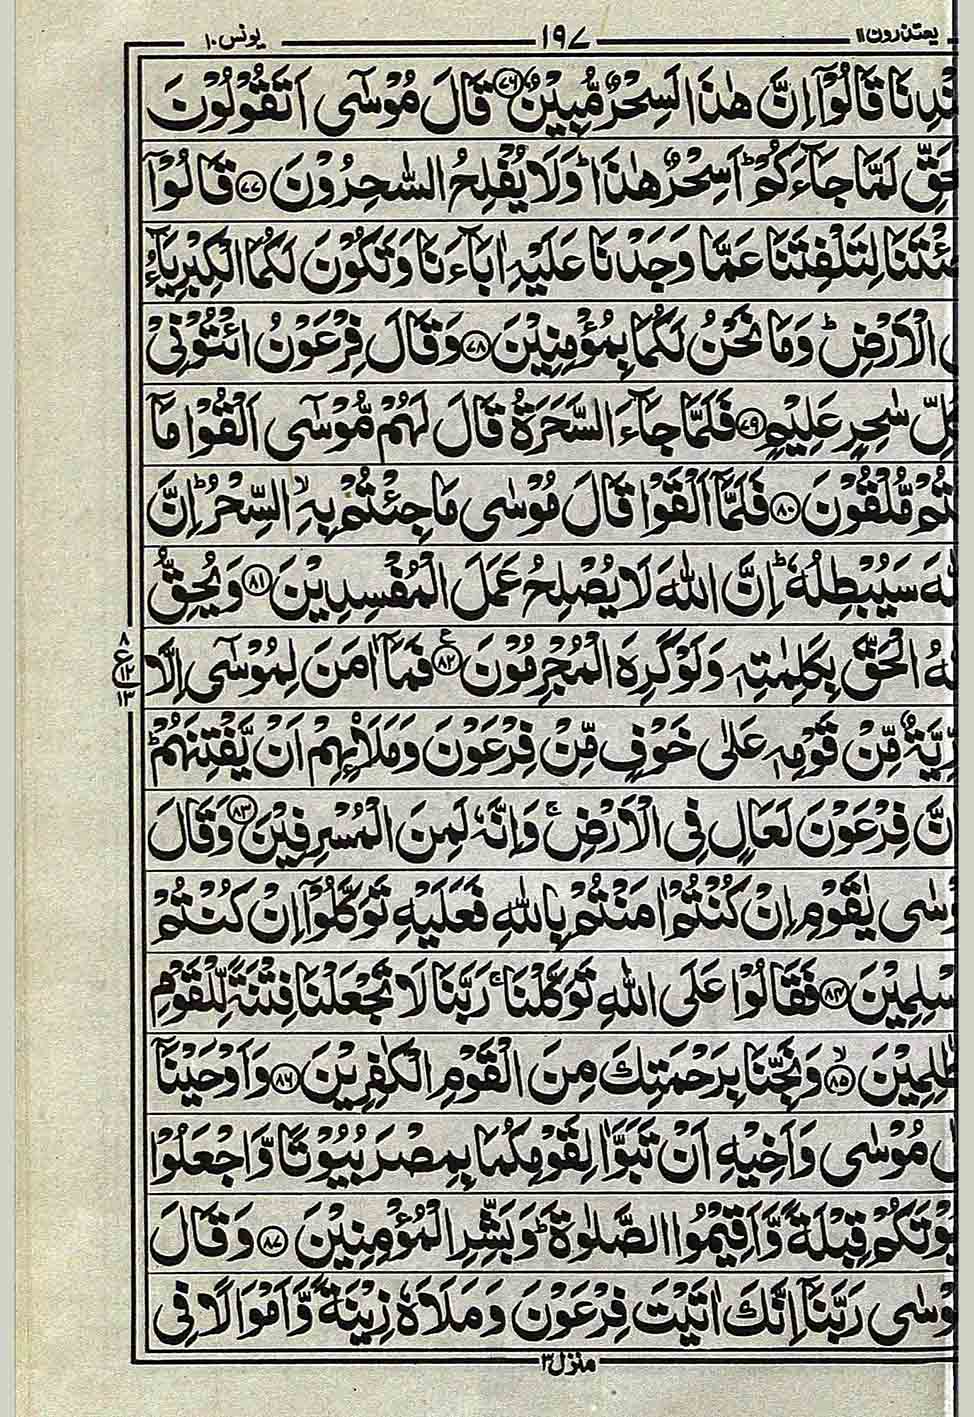 یعتذرون ۱۱ ۱۹۷ یونس ۱۰
قَالُوْۤا اِنَّ هٰذَا لَسِحْرٌ مُّبِیْنٌ ﴿۷۶﴾ قَالَ مُوْسٰۤی اَتَقُوْلُوْنَ
لَمَّا جَآءَكُمْ ؕ اَسِحْرٌ هٰذَا ؕ وَلَا یُفْلِحُ السّٰحِرُوْنَ ﴿۷۷﴾ قَالُوْۤا
لِتَلْفِتَنَا عَمَّا وَجَدْنَا عَلَیْهِ اٰبَآءَنَا وَتَكُوْنَ لَكُمَا الْكِبْرِیَآءُ
الْاَرْضِ ؕ وَمَا نَحْنُ لَكُمَا بِمُؤْمِنِیْنَ ﴿۷۸﴾ وَقَالَ فِرْعَوْنُ ائْتُوْنِیْ
سٰحِرٍ عَلِیْمٍ ﴿۷۹﴾ فَلَمَّا جَآءَ السَّحَرَةُ قَالَ لَهُمْ مُّوْسٰۤی اَلْقُوْا مَاۤ
مُّلْقُوْنَ ﴿۸۰﴾ فَلَمَّاۤ اَلْقَوْا قَالَ مُوْسٰی مَا جِئْتُمْ بِهِ ۙ السِّحْرُ ؕ اِنَّ
سَیُبْطِلُهٗ ؕ اِنَّ اللّٰهَ لَا یُصْلِحُ عَمَلَ الْمُفْسِدِیْنَ ﴿۸۱﴾ وَیُحِقُّ
الْحَقَّ بِكَلِمٰتِهٖ وَلَوْ كَرِهَ الْمُجْرِمُوْنَ ﴿۸۲﴾ ع فَمَاۤ اٰمَنَ لِمُوْسٰۤی اِلَّا
۸ ع ۱۲ ۱۳
مِّنْ قَوْمِهٖ عَلٰی خَوْفٍ مِّنْ فِرْعَوْنَ وَمَلَا۠ىِٕهِمْ اَنْ یَّفْتِنَهُمْ ؕ
فِرْعَوْنَ لَعَالٍ فِی الْاَرْضِ ۚ وَاِنَّهٗ لَمِنَ الْمُسْرِفِیْنَ ﴿۸۳﴾ وَقَالَ
یٰقَوْمِ اِنْ كُنْتُمْ اٰمَنْتُمْ بِاللّٰهِ فَعَلَیْهِ تَوَكَّلُوْۤا اِنْ كُنْتُمْ
﴿۸۴﴾ فَقَالُوْا عَلَی اللّٰهِ تَوَكَّلْنَا ۚ رَبَّنَا لَا تَجْعَلْنَا فِتْنَةً لِّلْقَوْمِ
﴿۸۵﴾ ۙ وَنَجِّنَا بِرَحْمَتِكَ مِنَ الْقَوْمِ الْكٰفِرِیْنَ ﴿۸۶﴾ وَاَوْحَیْنَاۤ
مُوْسٰی وَاَخِیْهِ اَنْ تَبَوَّاٰ لِقَوْمِكُمَا بِمِصْرَ بُیُوْتًا وَّاجْعَلُوْا
قِبْلَةً وَّاَقِیْمُوا الصَّلٰوةَ ؕ وَبَشِّرِ الْمُؤْمِنِیْنَ ﴿۸۷﴾ وَقَالَ
رَبَّنَاۤ اِنَّكَ اٰتَیْتَ فِرْعَوْنَ وَمَلَاَهٗ زِیْنَةً وَّاَمْوَالًا فِی
منزل ۳